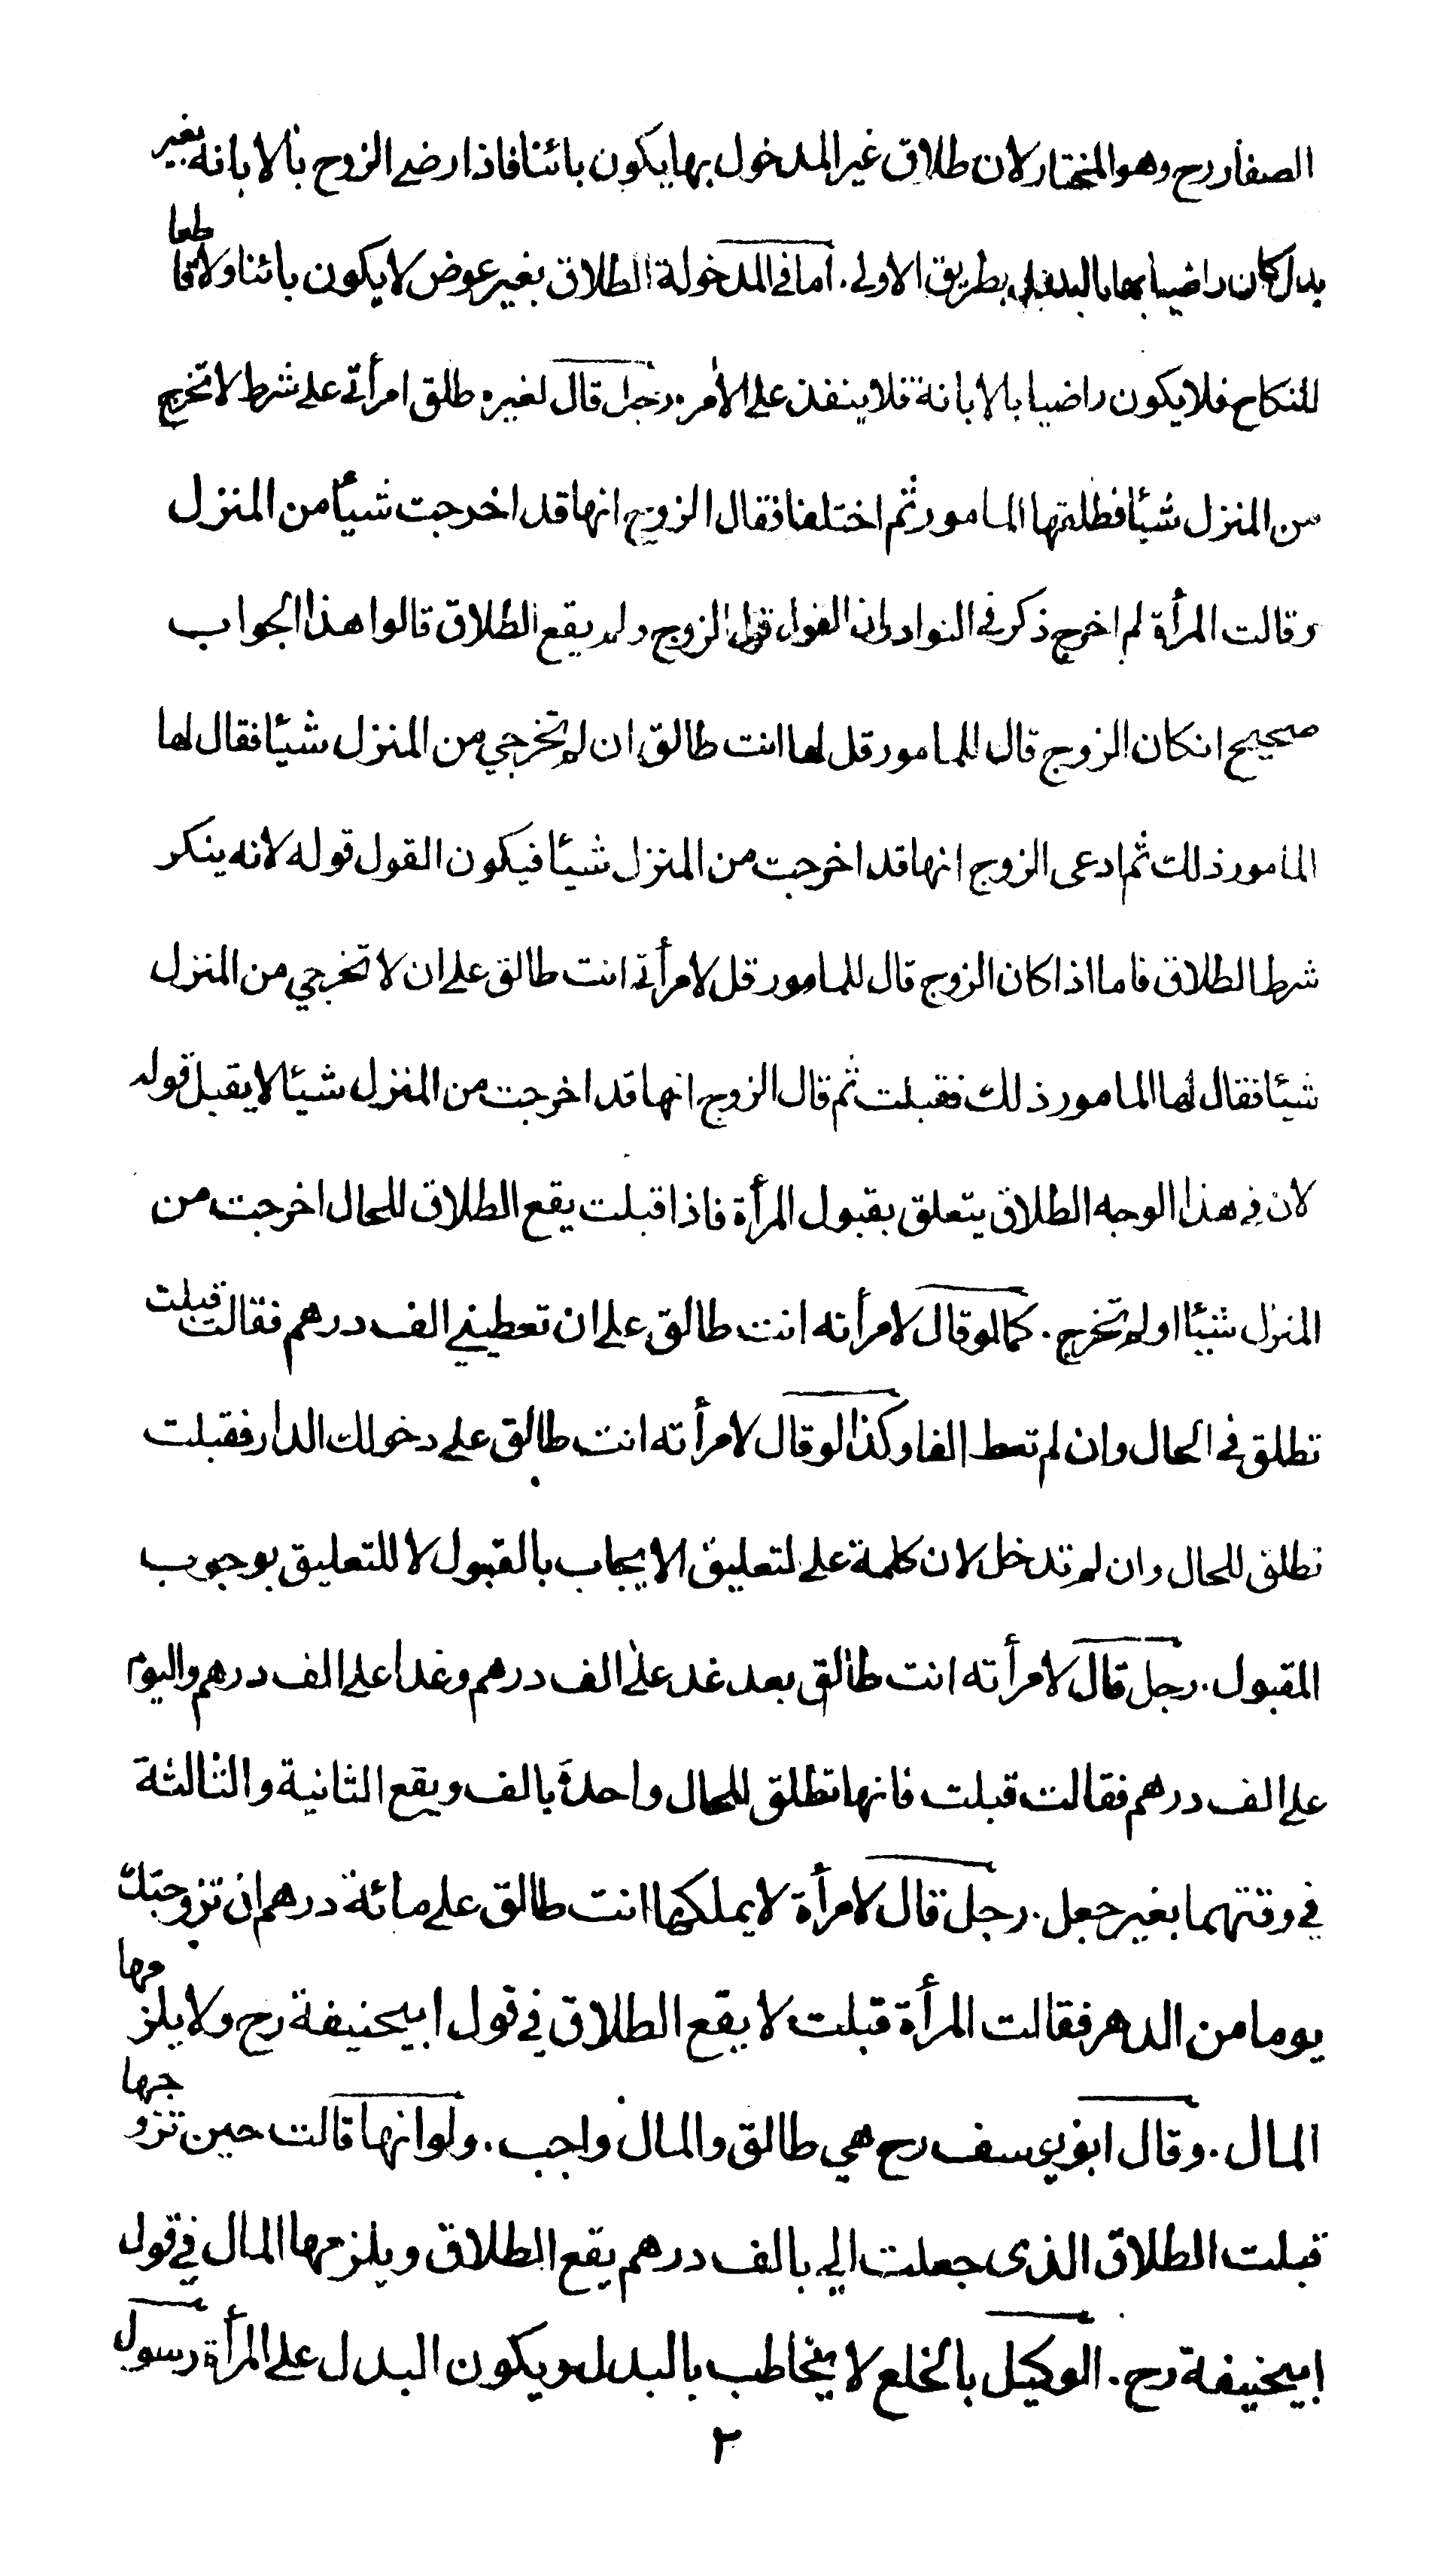 الصفار رح وهو المختار لان طلاق غير المدخول بها يكون بائنا فاذا رضي الزوج بالابانة بغير
بدل كان راضيا بها بالبدل بطريق الاولى . اما في المدخولة الطلاق بغير عوض لا يكون بائنا ولا قاطعا
للنكاح فلا يكون راضيا بالابانة فلا ينفذ على الآمر . رجل قال لغيره طلق امرأتي على شرط لا تخرج
من المنزل شيئا فطلقها المامور ثم اختلفا فقال الزوج انها قد اخرجت شيئا من المنزل
وقالت المرأة لم اخرج ذكر في النوادر ان القول قول الزوج ولم يقع الطلاق قالوا هذا الجواب
صحيح انكان الزوج قال للمامور قل لها انت طالق ان لم تخرجي من المنزل شيئا فقال لها
المامور ذلك ثم ادعى الزوج انها قد اخرجت من المنزل شيئا فيكون القول قوله لانه ينكر
شرط الطلاق فاما اذا كان الزوج قال للمامور قل لامرأتي انت طالق على ان لا تخرجي من المنزل
شيئا فقال لها المامور ذلك فقبلت ثم قال الزوج انها قد اخرجت من المنزل شيئا لا يقبل قوله
لان في هذا الوجه الطلاق يتعلق بقبول المرأة فاذا قبلت يقع الطلاق للحال اخرجت من
المنزل شيئا او لم تخرج . كما لو قال لامرأته انت طالق على ان تعطيني الف درهم فقالت قبلت
تطلق في الحال وان لم تعط الفا وكذا لو قال لامرأته انت طالق على دخولك الدار فقبلت
تطلق للحال وان لم تدخل لان كلمة على لتعليق الايجاب بالقبول لا للتعليق بوجوب
المقبول . رجل قال لامرأته انت طالق بعد غد على الف درهم وغدا على الف درهم واليوم
على الف درهم فقالت قبلت فانها تطلق للحال واحدة بالف ويقع الثانية والثالثة
في وقتهما بغير جعل . رجل قال لامرأة لا يملكها انت طالق على مائة درهم ان تزوجتك
يوما من الدهر فقالت المرأة قبلت لا يقع الطلاق في قول ابيحنيفة رح ولا يلزمها
المال . وقال ابو يوسف رح هي طالق والمال واجب . ولو انها قالت حين تزوجها
قبلت الطلاق الذى جعلت الي بالف درهم يقع الطلاق ويلزمها المال في قول
ابيحنيفة رح . الوكيل بالخلع لا يخاطب بالبدل ويكون البدل على المرأة رسول
٢